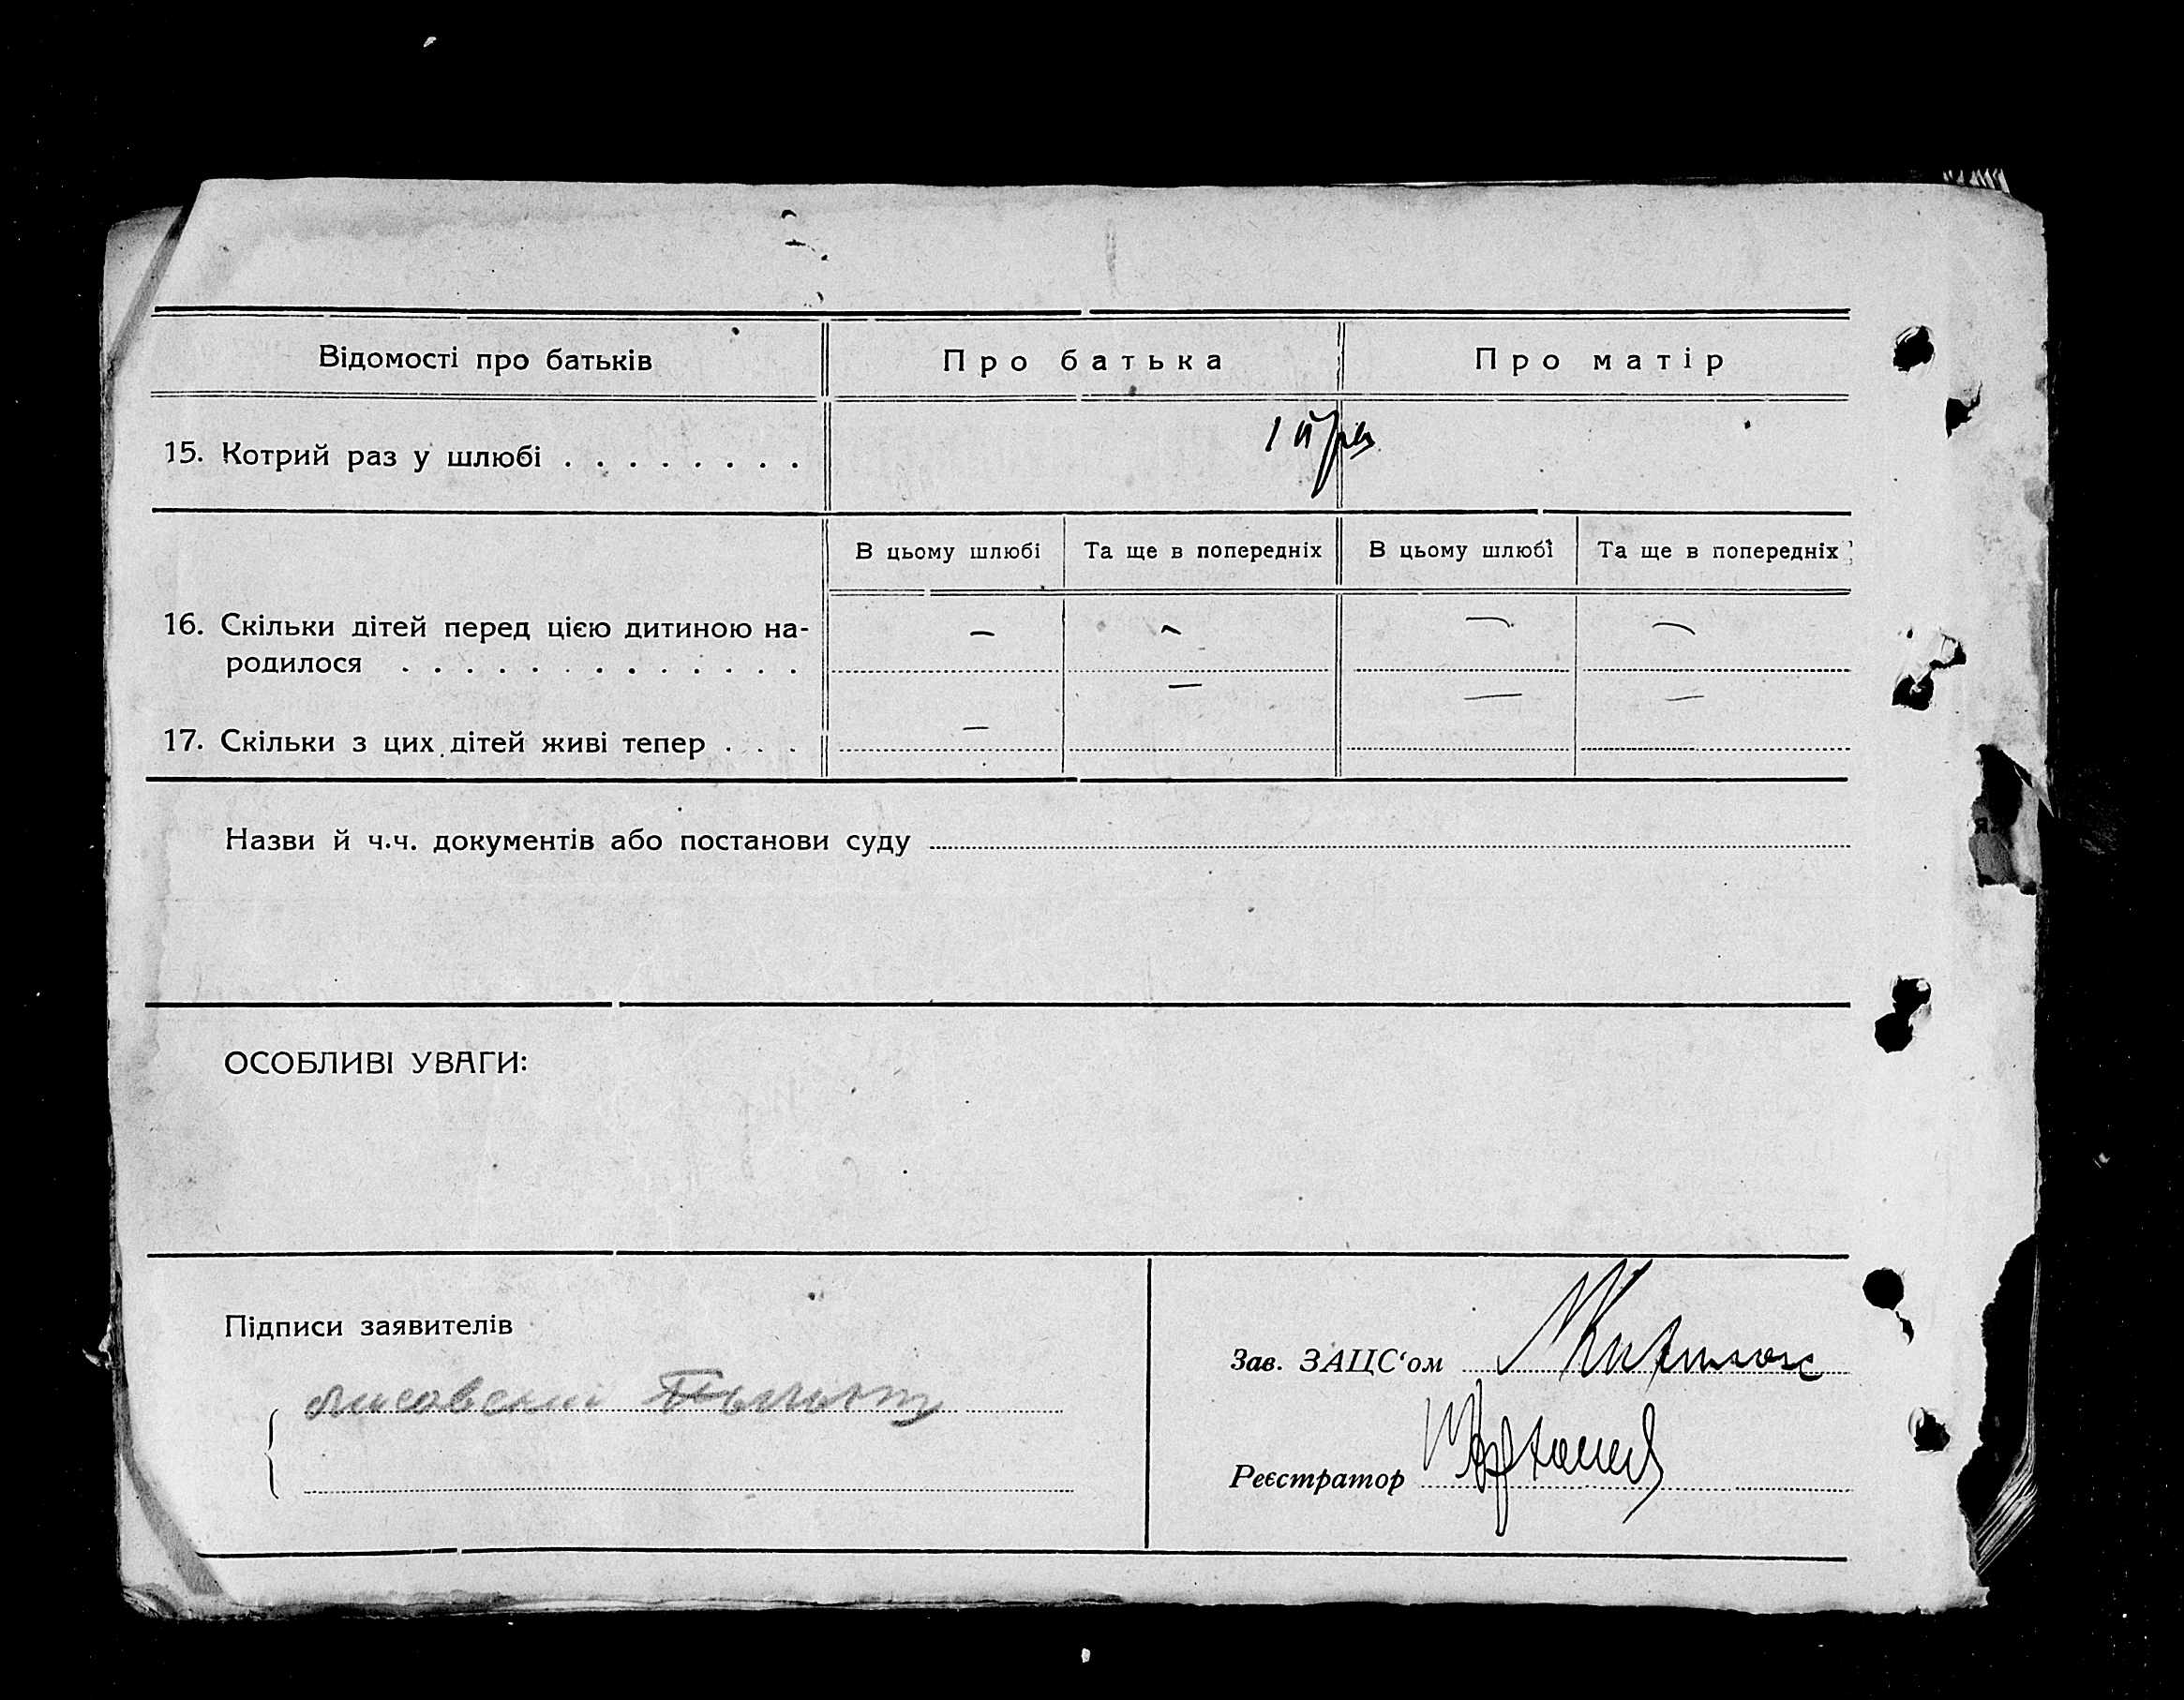 Відомості про батьків
Про батька
Про матір
15. Котрий раз у шлюбі . . . . . . . .
1 й раз
В цьому шлюбі
Та ще в попередніх
В цьому шлюбі
Та ще в попередніх
16. Скільки дітей перед цією дитиною на-
родилося . . . . . . . . . . . . .
— — — —
17. Скільки з цих дітей живі тепер . . .
— — — —
Назви й ч.ч. документів або постанови суду
ОСОБЛИВІ УВАГИ:
Підписи заявителів
Лисовский
Зав. ЗАЦС‘ом
Реєстратор